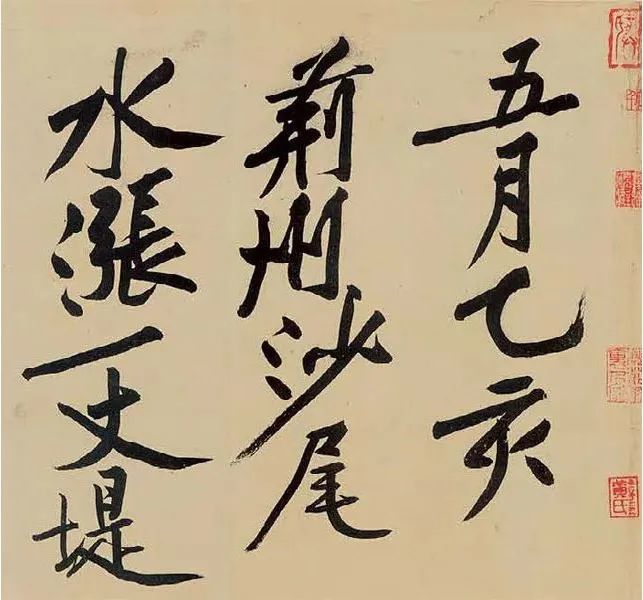 五月乙亥
荊州沙尾
水漲一丈堤